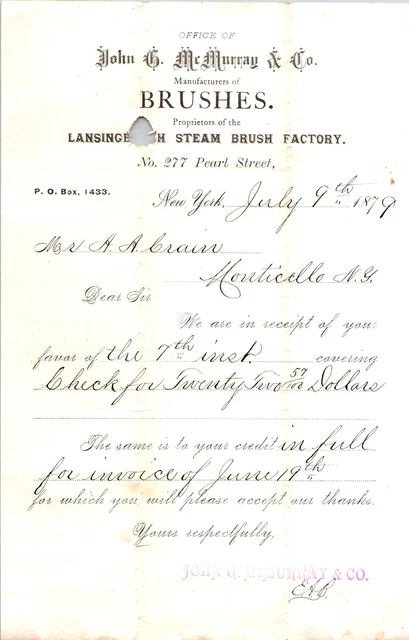 OFFICE OF
John G. McMurray & Co.
Manufacturers of
BRUSHES.
Proprietors of the
LANSINGB H STEAM BRUSH FACTORY.
No. 277 Pearl Street,
P. O. Box, 1433.
New York, July 9th 1879
Mr A. A. Crain
Monticello N.Y.
Dear Sir
We are in receipt of your
favor of the 7th inst. covering
Check for Twenty Two 57/00 Dollars
The same is to your credit in full
for invoice of June 19th
for which you will please accept our thanks.
Yours respectfully,
JOHN G. McMURRAY & CO.